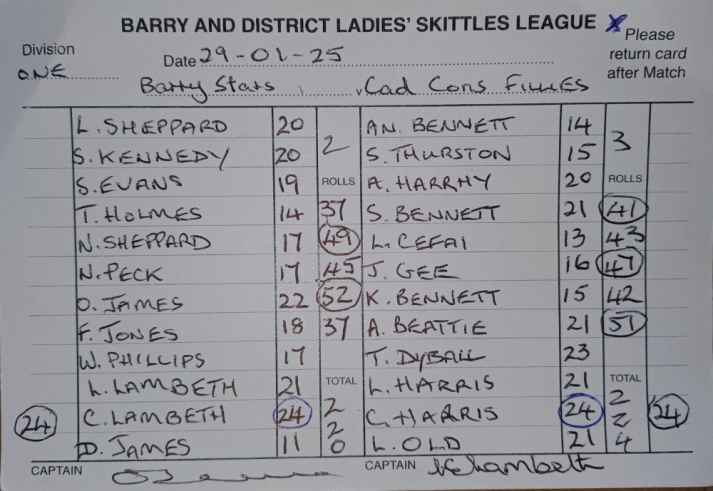 BARRY AND DISTRICT LADIES' SKITTLES LEAGUE X Please
Division return card
ONE Date 29-01-25 after Match
Barry Stars v Cad Cons Fillies
L. SHEPPARD 20 AN. BENNETT 14
2 3
S. KENNEDY 20 S. THURSTON 15
S. EVANS 19 ROLLS A. HARRHY 20 ROLLS
T. HOLMES 14 37 S. BENNETT 21 41
N. SHEPPARD 17 49 L. CEFAI 13 43
N. PECK 17 45 J. GEE 16 47
D. JAMES 22 52 K. BENNETT 15 42
F. JONES 18 37 A. BEATTIE 21 51
W. PHILLIPS 17 T. DYBALL 23
L. LAMBETH 21 TOTAL L. HARRIS 21 TOTAL
24 C. LAMBETH 24 2 C. HARRIS 24 2 24
2 2
D. JAMES 11 0 L. OLD 21 4
CAPTAIN CAPTAIN